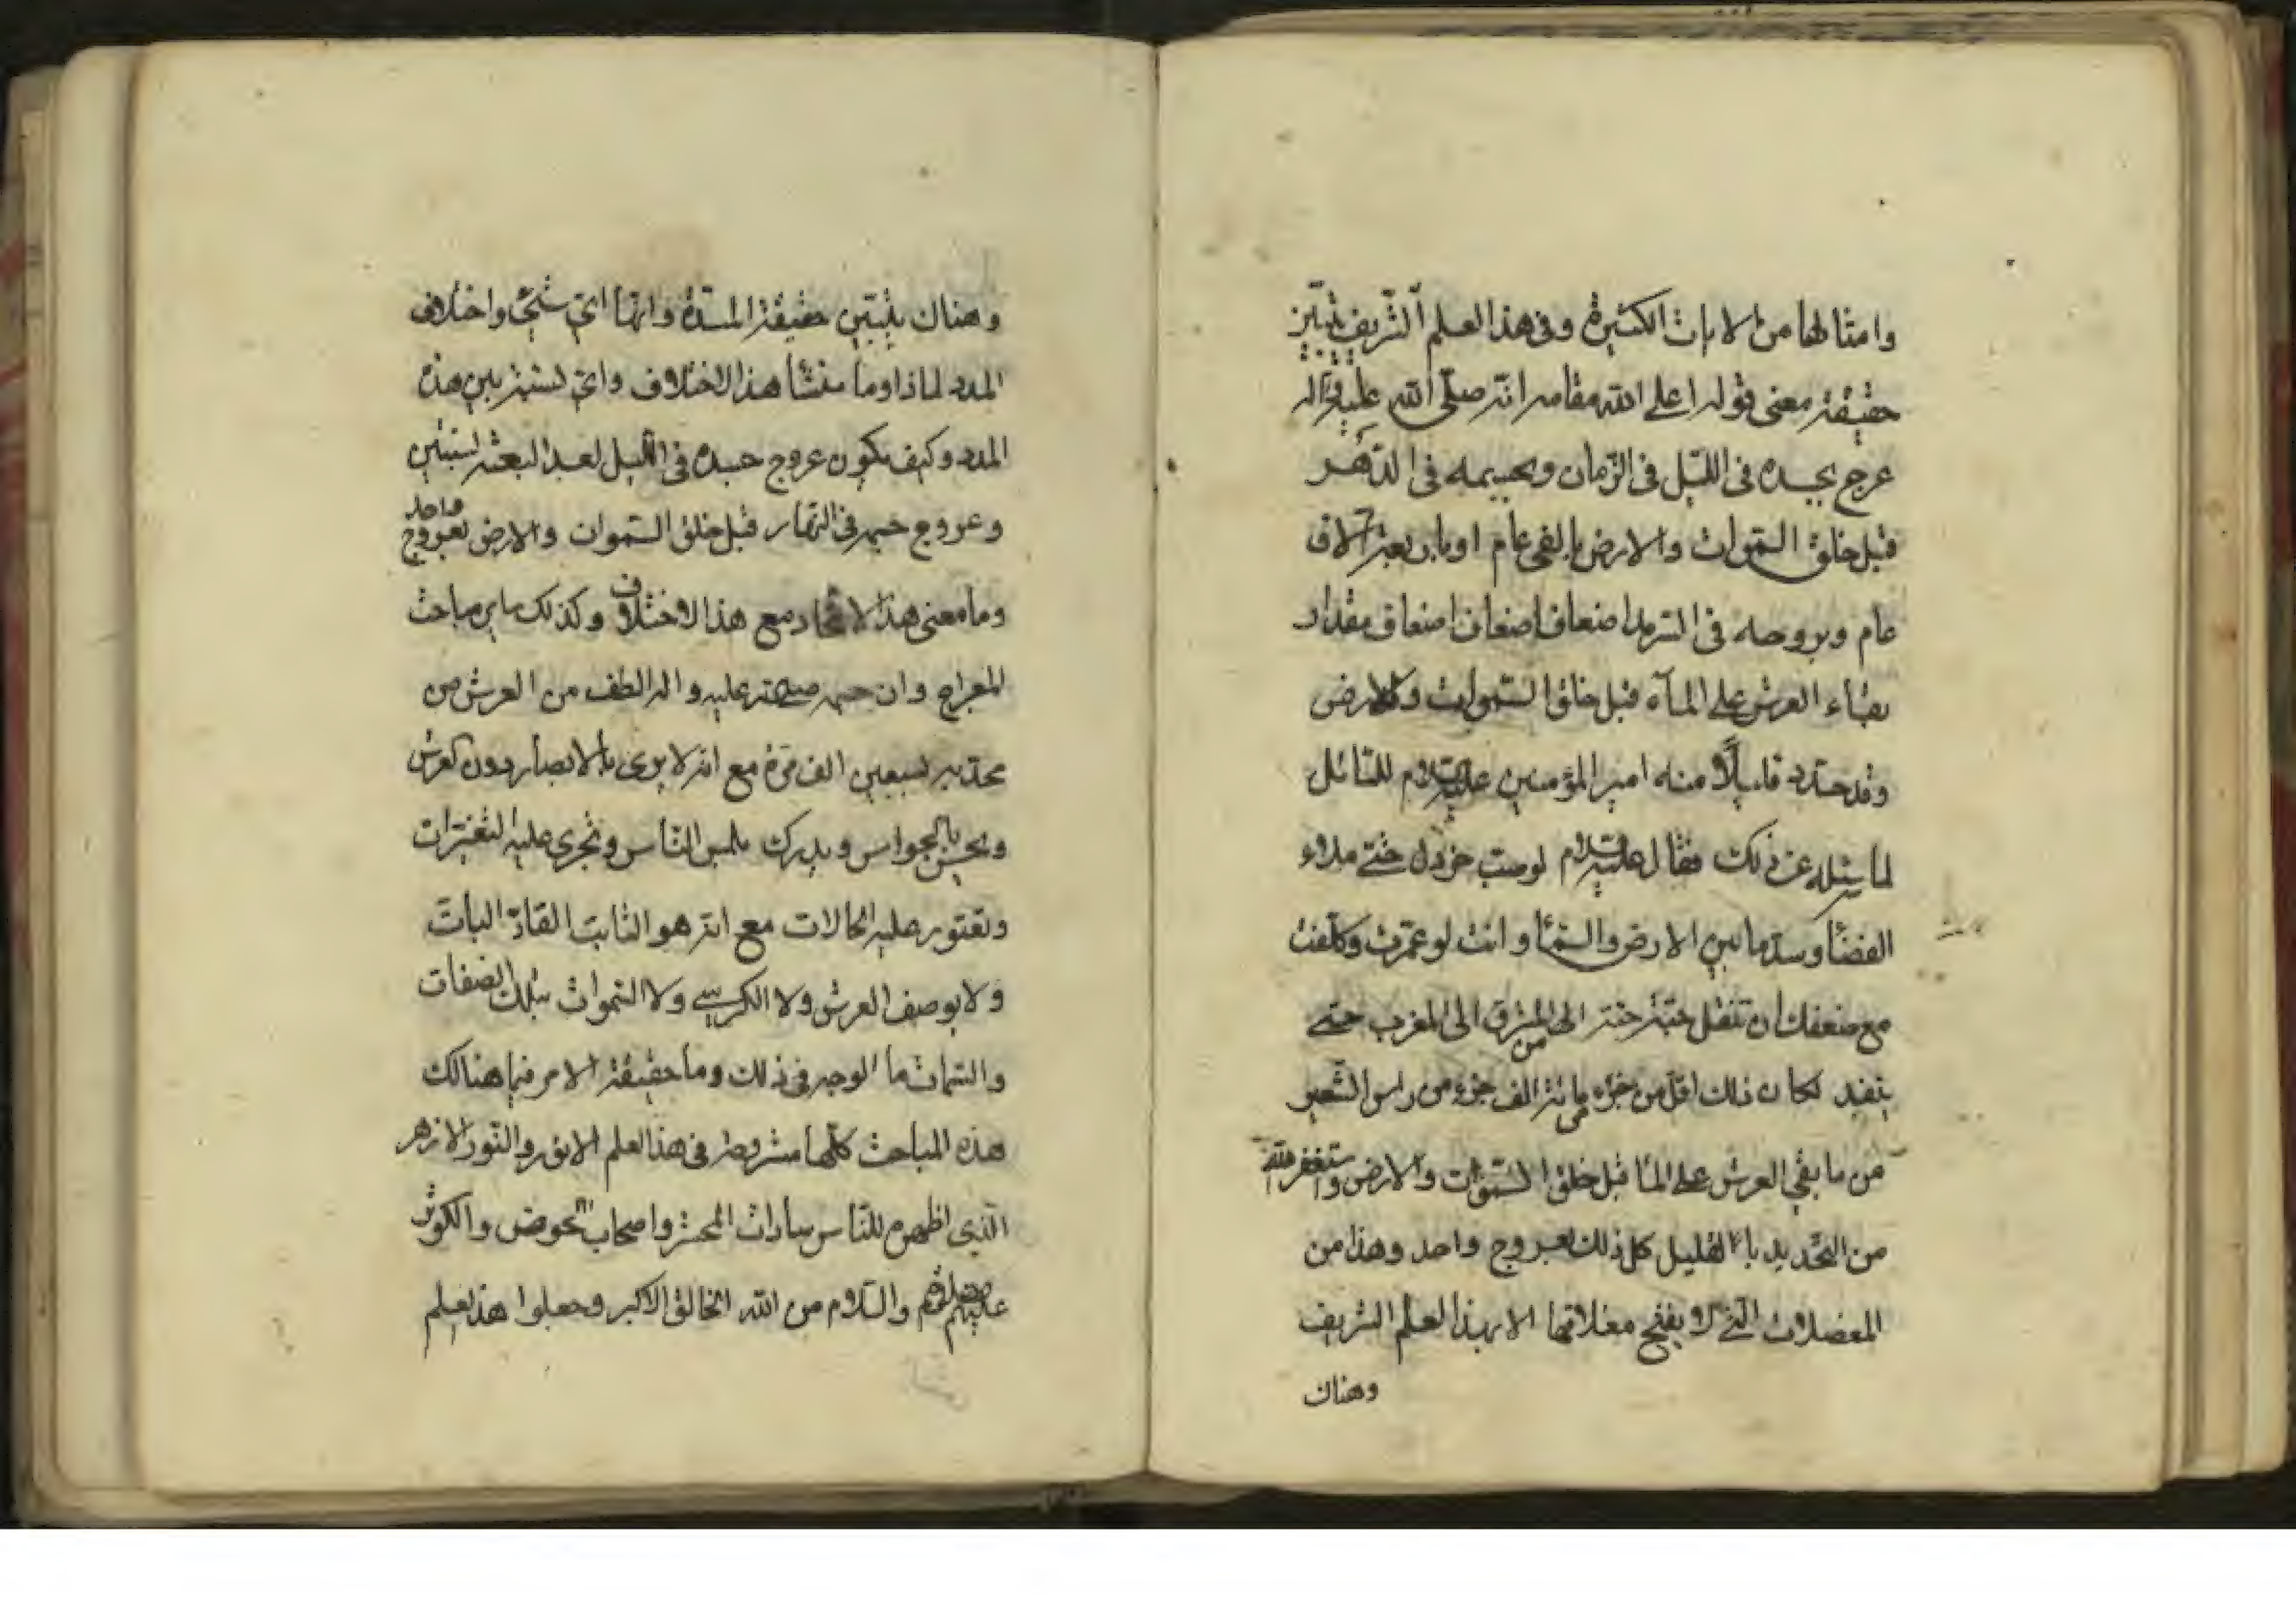 وامثالها من الايات الكثيرة وفى هذا العلم الشريف تبين
حقيقة معنى قوله اعلى الله مقامه انه صلى الله عليه وآله
عرج بجسده فى الليل فى الزمان وبجسمه فى الدهر
قبل خلق السموات والارض بالفى عام او باربعة آلاف
عام وبروحه فى السرمد اضعاف اضعاف اضعاف مقدار
بقاء العرش على المآء قبل خلق السموات والارض
وقد حدد قليلاً منه امير المؤمنين عليه السلام للسائل
لما سئله عن ذلك فقال عليه السلام لو صب خردل حتى ملاء
الفضا وسد ما بين الارض والسما وانت لو عمرت وكلفت
مع ضعفك ان تنقل حبة حبة من المشرق الى المغرب حتى
ينفد لكان ذلك اقل من جزء من مائة الف جزء من راس الشعير
من ما بقى العرش على الما قبل خلق السموات والارض واستغفر الله
من التحديد بالقليل كل ذلك بعروج واحد وهذا من
المعضلات التى لا يفتح مغلاقها الا بهذا العلم الشريف
وهناك
وهناك يتبين حقيقة المدة وانها اى شيئ واختلاف
المدد لماذا وما منشأ هذا الاختلاف واى نسبة بين هذه
المدد وكيف يكون عروج جسده فى الليل بعد البعثة بسنتين
وعروج جسمه فى النهار قبل خلق السموات والارض بعروج واحد
وما معنى هذا الاتحاد مع هذا الاختلاف وكذلك ساير مباحث
المعراج وان جسمه صلى الله عليه واله الطف من العرش من
محدبه بسبعين الف مرة مع انه لا يرى بالابصار دون العرش
ويحس بالحواس ويدرك بلمس الناس وتجرى عليه التغيرات
وتعتور عليه الحالات مع انه هو الثابت القاد البات
ولا يوصف العرش ولا الكرسى ولا السموات بتلك الصفات
والسمات ما الوجه فى ذلك وما حقيقة الامر فيما هنالك
هذه المباحث كلها مشروطة فى هذا العلم الانور والنور الازهر
الذى اظهره للناس سادات المحشر واصحاب الحوض والكوثر
عليهم صلوة والسلام من الله الخالق الاكبر وجعلوا هذا العلم